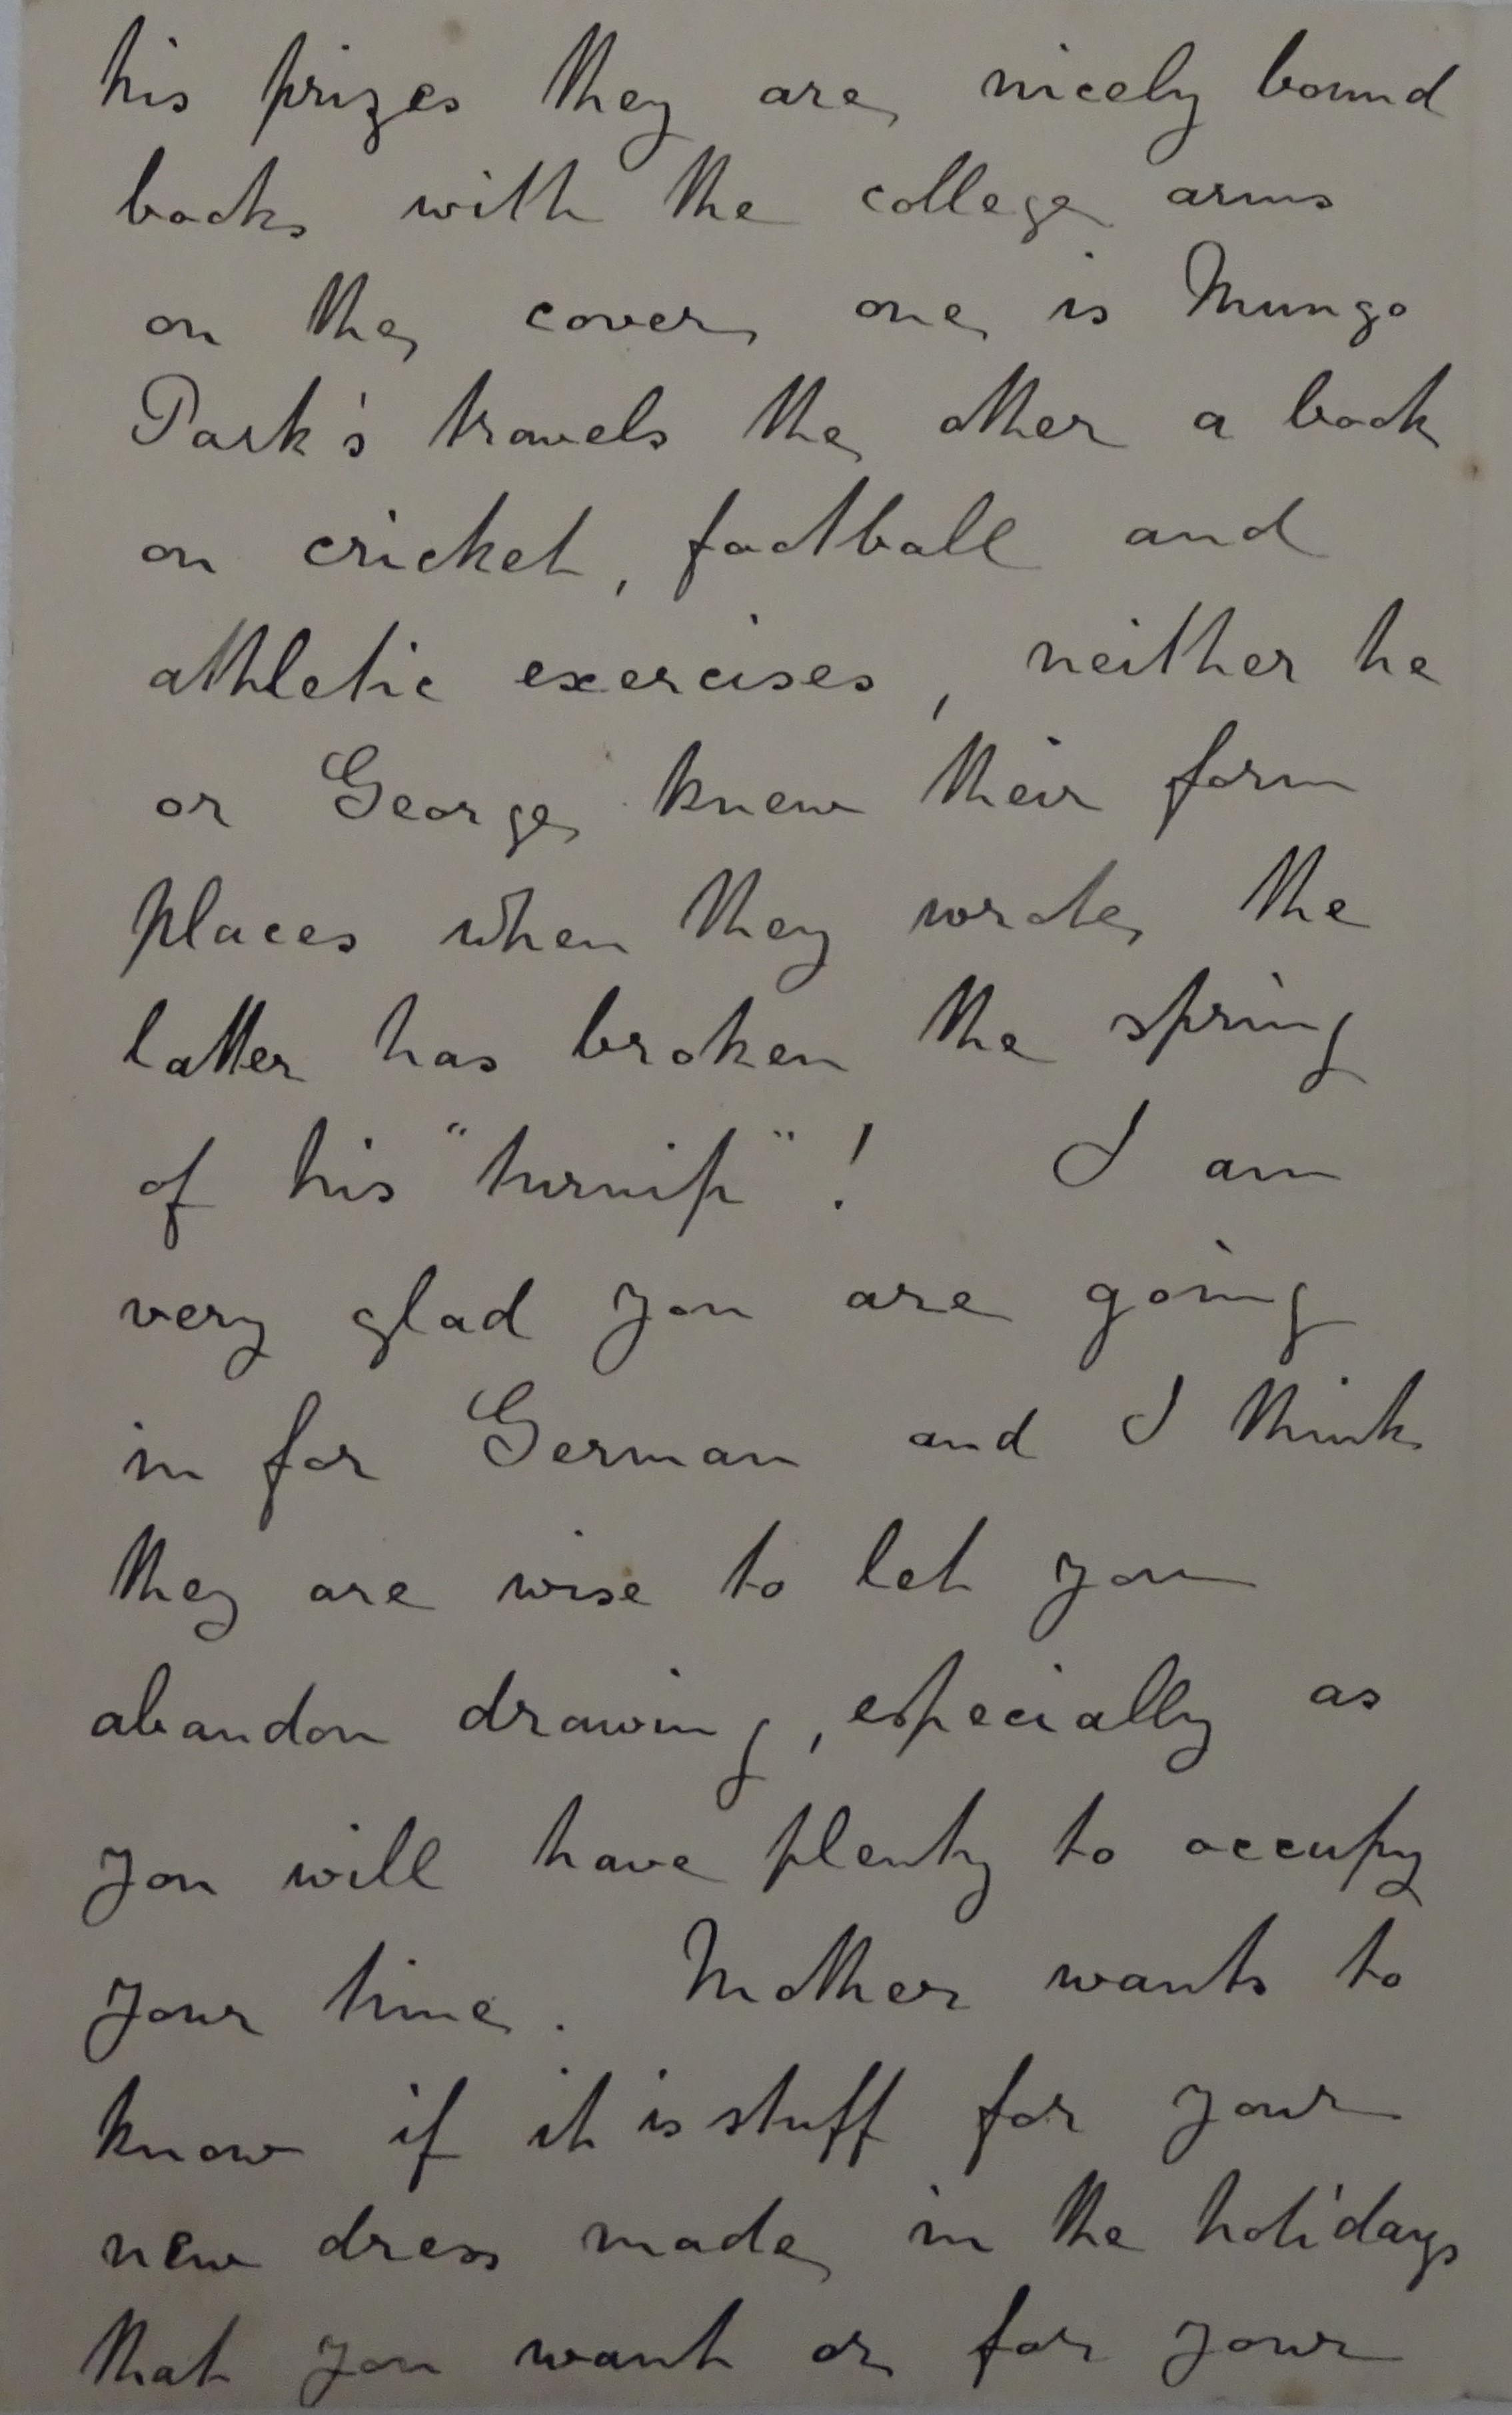 his prizes they are nicely bound
books with the college arms
on the cover one is Mungo
Park's travels the other a book
on cricket, football and
athletic exercises, neither he
or George knew their form
places when they wrote, the
latter has broken the spring
of his "turnip"! I am
very glad you are going
in for German and I think
they are wise to let you
abandon drawing, especially as
you will have plenty to occupy
your time. Mother wants to
know if it is stuff for your
new dress made in the holidays
that you want or for your